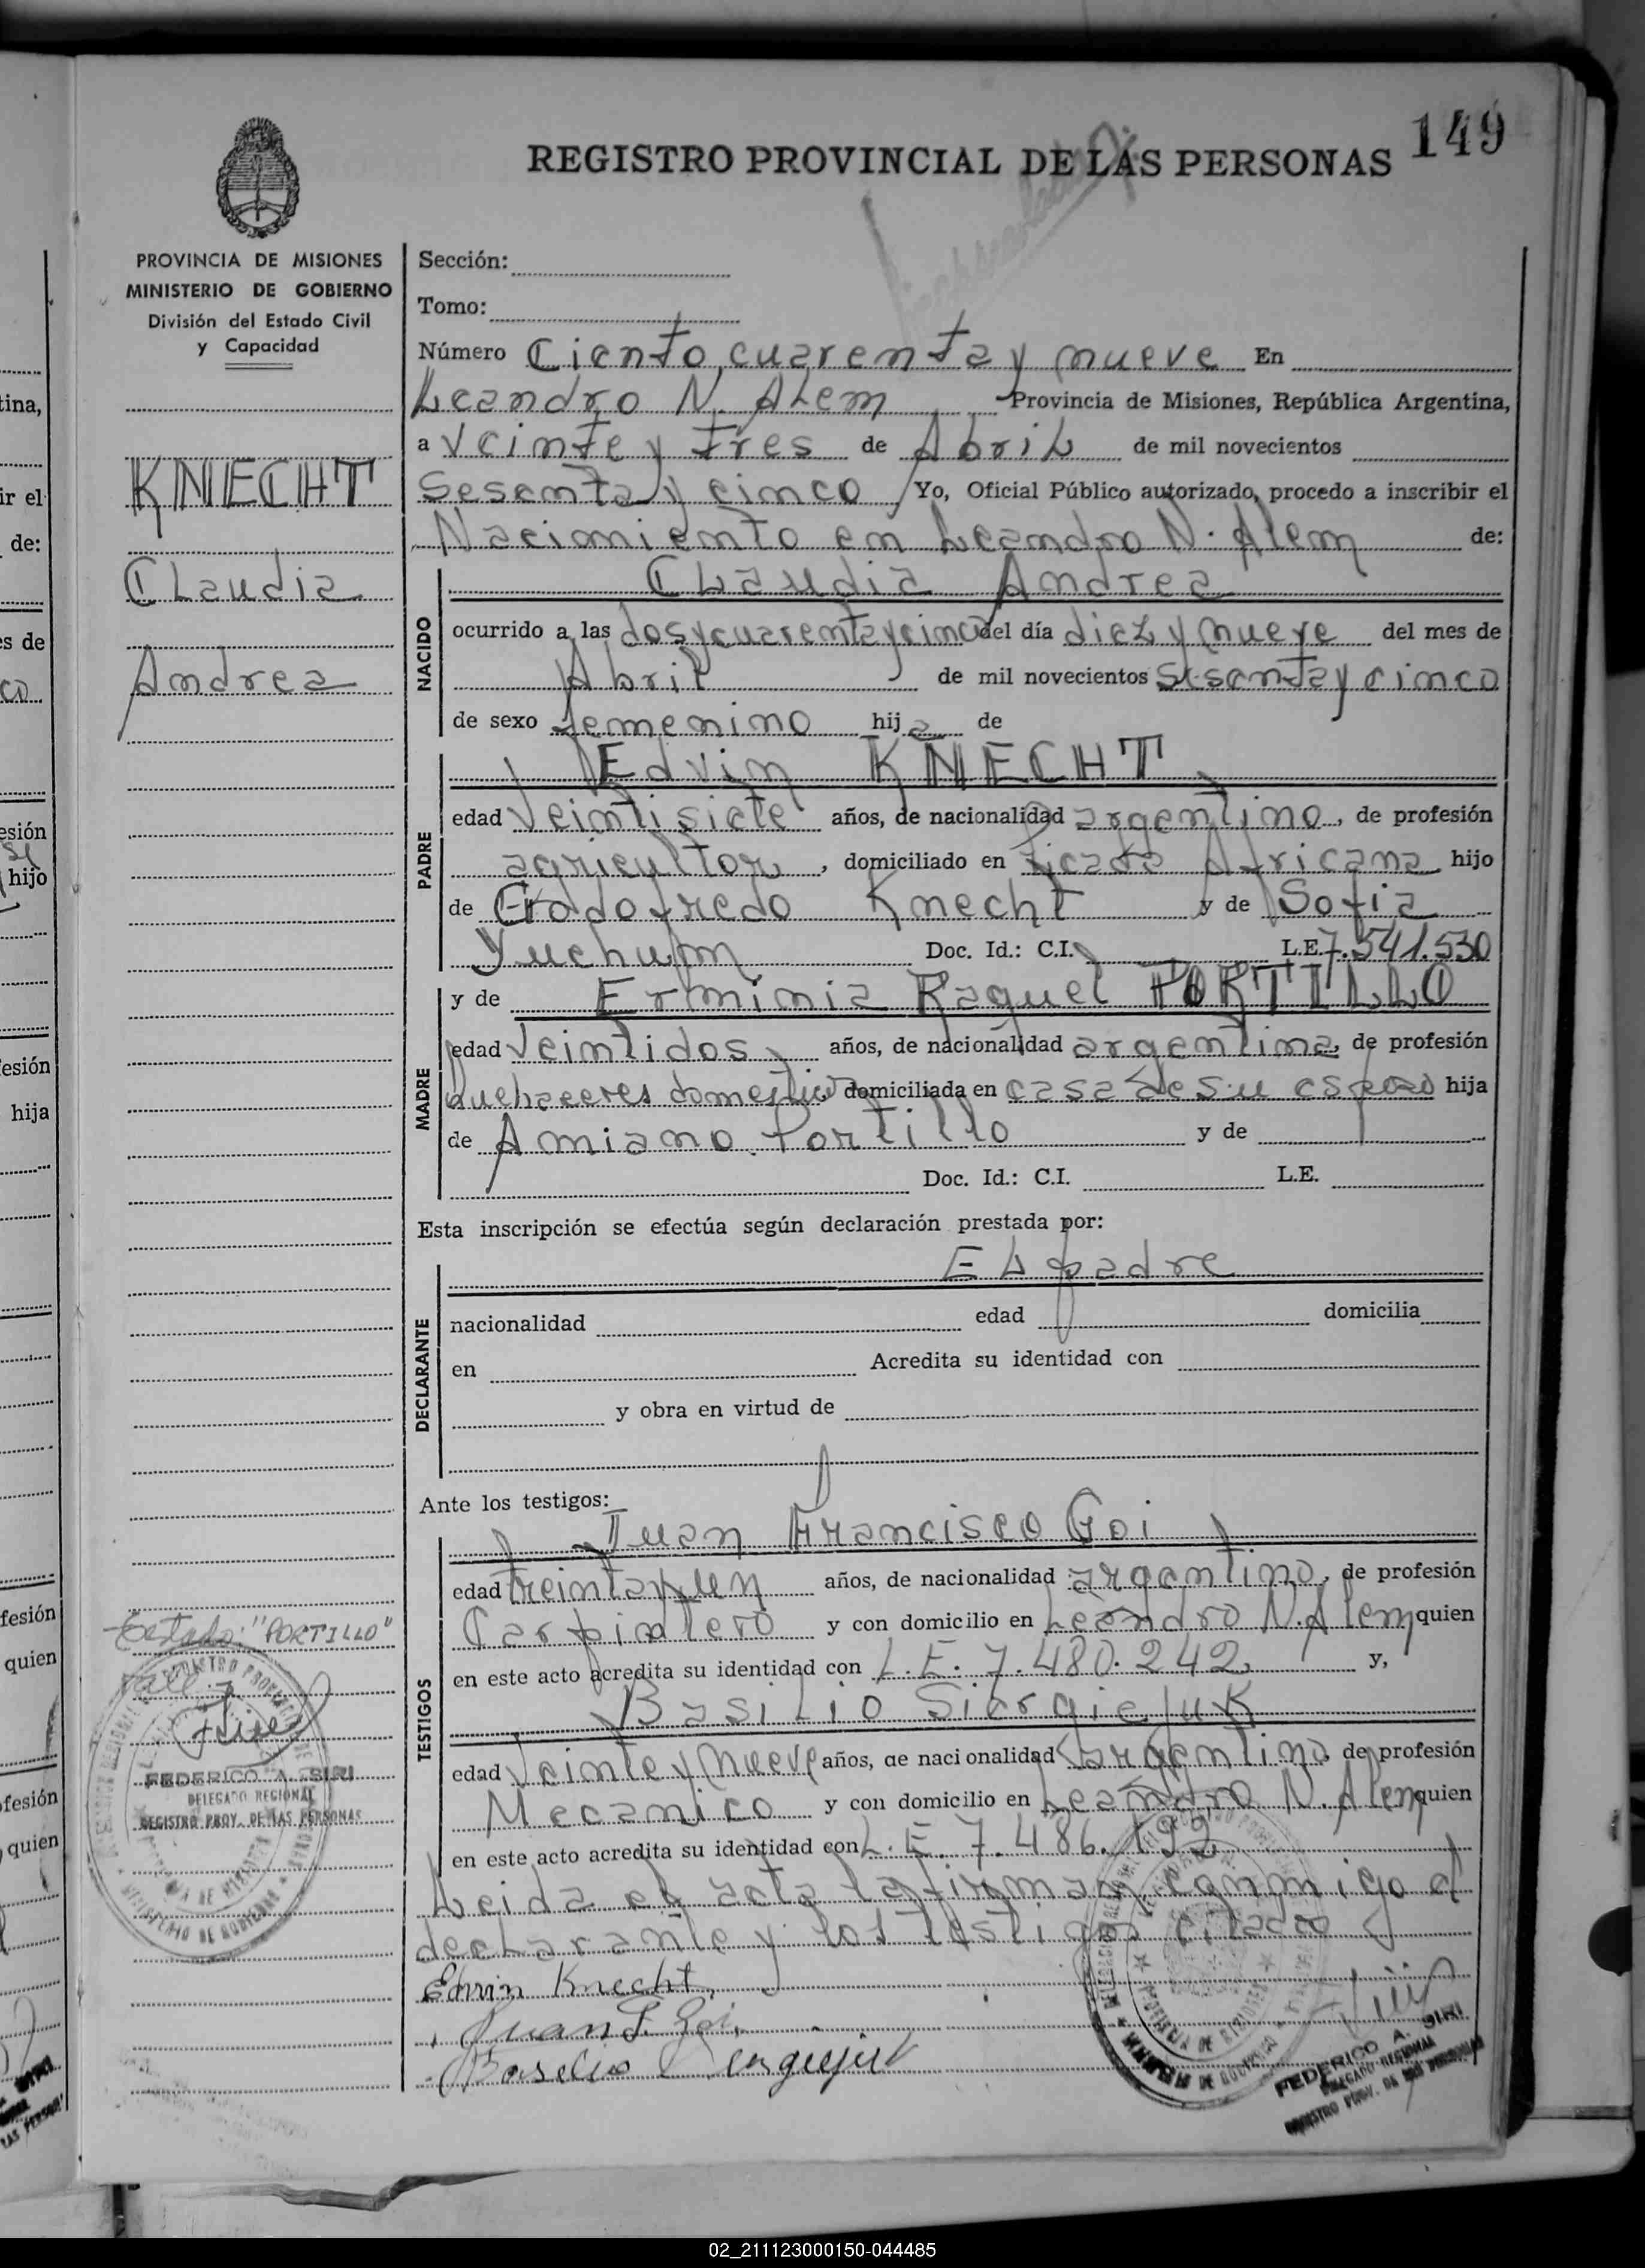 149
REGISTRO PROVINCIAL DE LAS PERSONAS
PROVINCIA DE MISIONES
MINISTERIO DE GOBIERNO
División del Estado Civil
y Capacidad
KNECHT
Claudia
Andrea
Sección:
Tomo:
Número Ciento cuarenta y nueve En
Leandro N. Alem Provincia de Misiones, República Argentina,
a Veinte y tres de Abril de mil novecientos
Sesenta y cinco Yo, Oficial Público autorizado, procedo a inscribir el
Nacimiento en Leandro N. Alem de:
Claudia Andrea
NACIDO
ocurrido a las dos y cuarenta y cinco del día diez y nueve del mes de
Abril de mil novecientos sesenta y cinco
de sexo femenino hija de
Edvin KNECHT
PADRE
edad Veintisiete años, de nacionalidad argentino, de profesión
agricultor, domiciliado en Picada Africana hijo
de Godofredo Knecht y de Sofia
Yuchum Doc. Id.: C.I. L.E. 7.541.530
y de Erminia Raquel PORTILLO
MADRE
edad Veintidos años, de nacionalidad argentina, de profesión
quehaceres domestico domiciliada en casa de su esposo hija
de Amiano Portillo y de
Doc. Id.: C.I. L.E.
Esta inscripción se efectúa según declaración prestada por:
El padre
DECLARANTE
nacionalidad edad domicilia
en Acredita su identidad con
y obra en virtud de
Ante los testigos:
Juan Francisco Goi
TESTIGOS
edad treinta y un años, de nacionalidad argentino, de profesión
Carpintero y con domicilio en Leandro N. Alem quien
en este acto acredita su identidad con L.E. 7.480.242, y,
Basilio Siergiejuk
edad Veinte y nueve años, de nacionalidad argentino, de profesión
Mecanico y con domicilio en Leandro N. Alem quien
en este acto acredita su identidad con L.E. 7.486.192
Leida el acta la firman conmigo el
declarante y los testigos citados
Edwin Knecht,
Juan F. Goi,
Testado: "PORTILLO"
Vale.
FEDERICO A. SIRI
DELEGADO REGIONAL
REGISTRO PROV. DE LAS PERSONAS
FEDERICO A. SIRI
DELEGADO REGIONAL
REGISTRO PROV. DE LAS PERSONAS
02_211123000150-044485